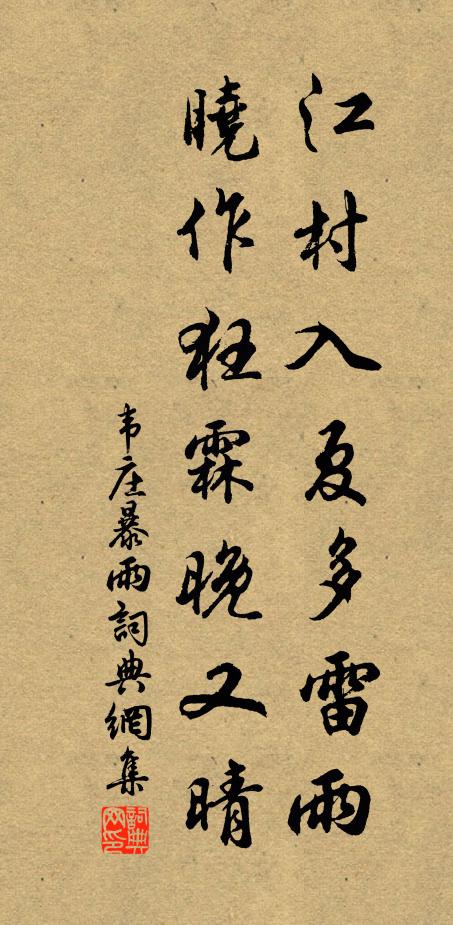 江村入夏多雷雨
曉作狂霖晚又晴
韦庄暴雨詞典網集
詞典網印